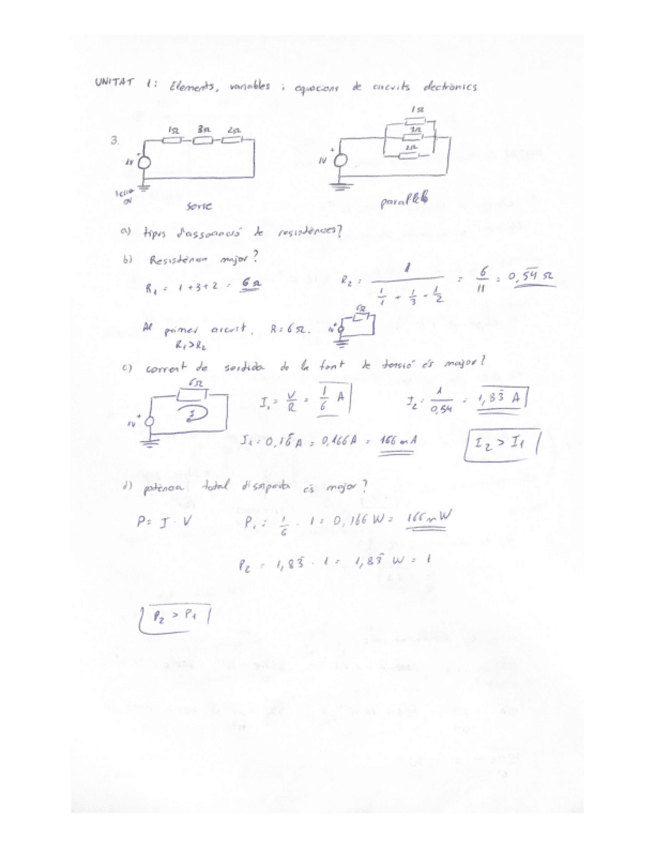 UNITAT 1: Elements, variables i equacions de circuits electrònics
3.
1Ω 3Ω 2Ω
1V
serie
1Ω
3Ω
2Ω
1V
parallel
a) tipus d'associació de resistències?
b) Resistència major?
R₁ = 1+3+2 = 6Ω
R₂ = 1 / (1/1 + 1/3 + 1/2) = 6/11 = 0,54 Ω
Al primer circuit, R=6Ω. 6Ω 1V
R₁>R₂
c) corrent de sortida de la font de tensió és major?
6Ω
1V I
I₁ = V/R = 1/6 A
I₂ = 1/0,54 = 1,83 A
I₁ = 0,16 A = 0,166A = 166 mA
I₂ > I₁
d) potència total dissipada és major?
P = I · V
P₁ = 1/6 · 1 = 0,166 W = 166 mW
P₂ = 1,83 · 1 = 1,83 W = 1
P₂ > P₁